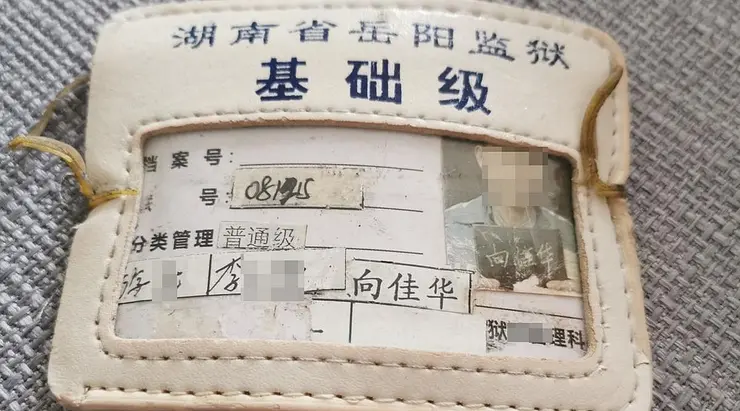 湖南省岳阳监狱
基础级
档案号:
号 081
分类管理 普通级
李 向佳华
向佳华
狱 理科